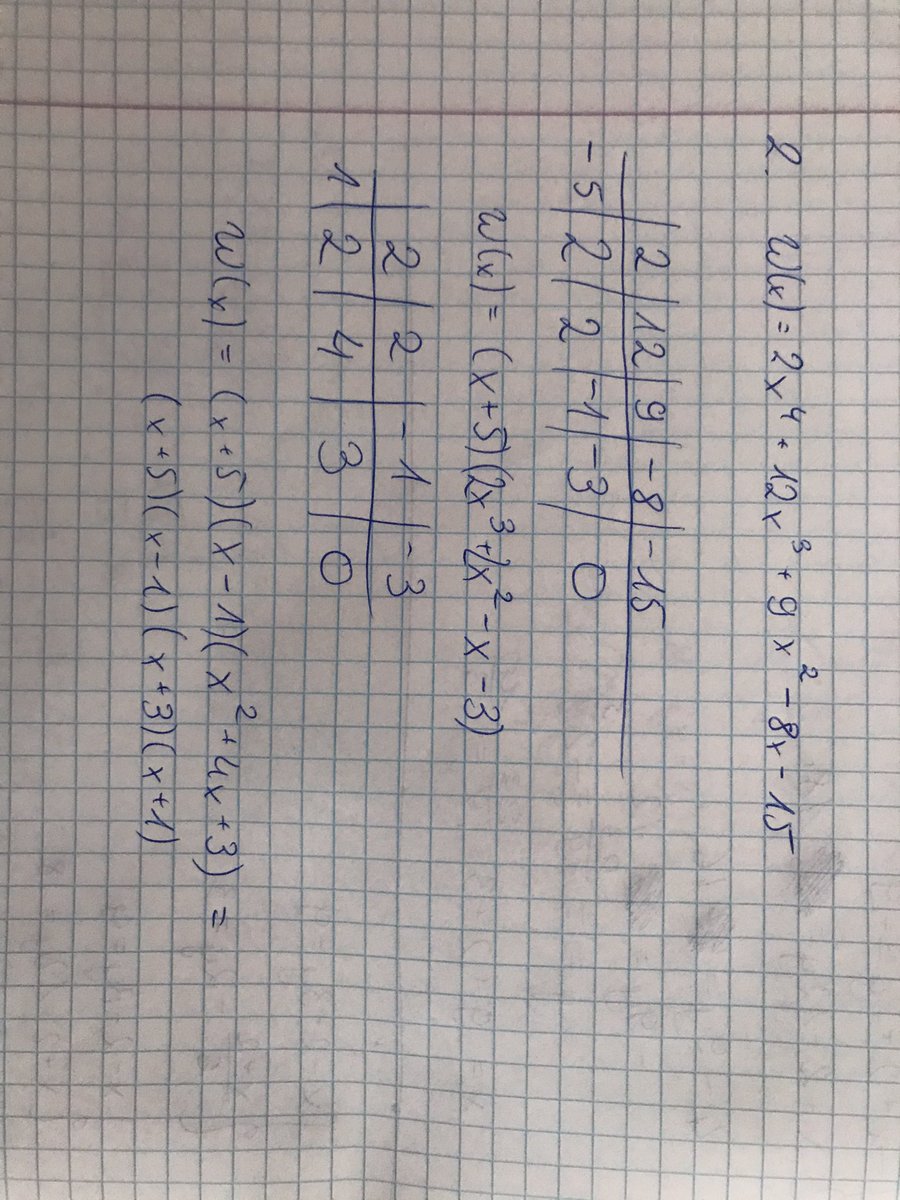 2. W(x) = 2x⁴ + 12x³ + 9x² - 8x - 15
| 2 | 12 | 9 | -8 | -15
-5 | 2 | 2 | -1 | -3 | 0
W(x) = (x+5)(2x³+2x²-x-3)
| 2 | 2 | -1 | -3
1 | 2 | 4 | 3 | 0
W(x) = (x+5)(x-1)(x²+4x+3) =
(x+5)(x-1)(x+3)(x+1)